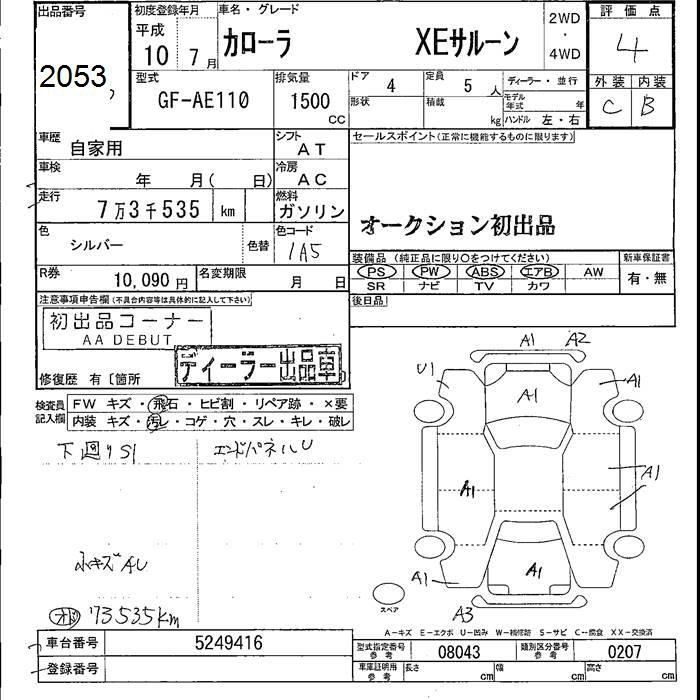 出品番号
2053
初度登録年月
平成
10 7月
車名・グレード
カローラ XEサルーン
2WD
・
4WD
評価点
4
外装 内装
C B
型式
GF-AE110
排気量
1500
CC
ドア 4
定員 5人
ディーラー・並行
形状
積載 kg
モデル年式 年
ハンドル 左・右
車歴
自家用
シフト
AT
セールスポイント(正常に機能するものに限ります)
オークション初出品
車検
年 月( 日)
冷房
AC
走行
7万3千535 km
燃料
ガソリン
色
シルバー
色替
色コード
1A5
装備品 (純正品に限り○をつけてください)
PS PW ABS エアB AW
SR ナビ TV カワ
新車保証書
有・無
R券
10,090円
名変期限
月 日
後日品
注意事項申告欄(不具合内容等は具体的に記入して下さい)
初出品コーナー
AA DEBUT
ディーラー出品車
修復歴 有〔箇所
検査員
記入欄
FW キズ・飛石・ヒビ割・リペア跡・×要
内装 キズ・汚レ・コゲ・穴・スレ・キレ・破レ
下回りS1
エンドパネルU
小キズAU
オド 73535km
A1 A2
U1
A1
A1
A1
A1
A1
A1
A1
スペア
A3
A-キズ E-エクボ U-凹み W-補修跡 S-サビ C-腐食 XX-交換済
車台番号
5249416
登録番号
型式指定番号
参考
08043
類別区分番号
参考
0207
車庫証明用
参考
長さ cm
幅 cm
高さ cm